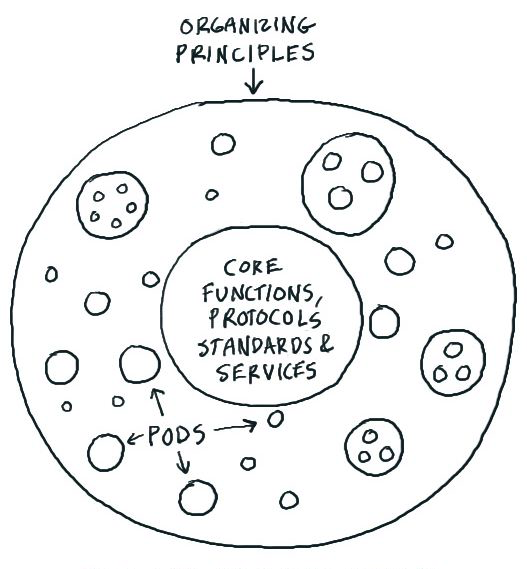 ORGANIZING
PRINCIPLES
CORE
FUNCTIONS,
PROTOCOLS
STANDARDS &
SERVICES
PODS